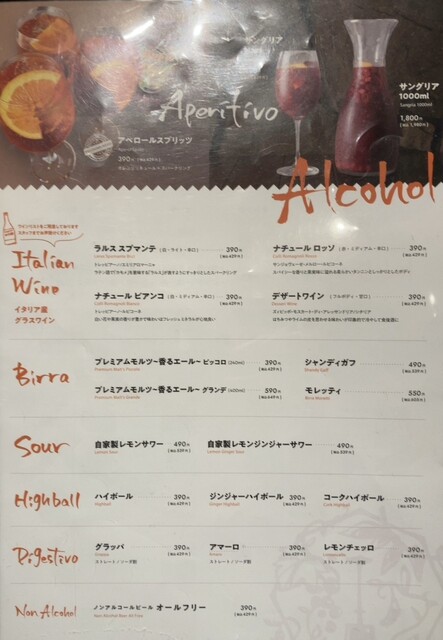 サングリア
Aperitivo
サングリア
1000ml
Sangria 1000ml
1,800円
(税込 1,980円)
アペロールスプリッツ
390円 (税込429円)
Alcohol
ワインリストをご用意しております
スタッフまでお声掛けください
Italian
Wine
イタリア産
グラスワイン
ラルス スプマンテ (白・ライト・辛口) 390円
(税込429円)
ナチュール ロッソ (赤・ミディアム・辛口) 390円
(税込429円)
ナチュール ビアンコ (白・ミディアム・辛口) 390円
(税込429円)
デザートワイン (フルボディ・甘口) 390円
(税込429円)
Birra
プレミアムモルツ〜香るエール〜 ピッコロ (240ml) 390円
(税込429円)
シャンディガフ 490円
(税込539円)
プレミアムモルツ〜香るエール〜 グランデ (400ml) 590円
(税込649円)
モレッティ 550円
(税込605円)
Sour
自家製レモンサワー 490円
Lemon Sour (税込539円)
自家製レモンジンジャーサワー 490円
Lemon Ginger Sour (税込539円)
Highball
ハイボール 390円
Highball (税込429円)
ジンジャーハイボール 390円
Ginger Highball (税込429円)
コークハイボール 390円
Coke Highball (税込429円)
Digestivo
グラッパ 390円
Grappa (税込429円)
ストレート／ソーダ割
アマーロ 390円
Amaro (税込429円)
ストレート／ソーダ割
レモンチェッロ 390円
(税込429円)
ストレート／ソーダ割
Non Alcohol
ノンアルコールビール オールフリー 390円
Non Alcohol Beer All Free (税込429円)